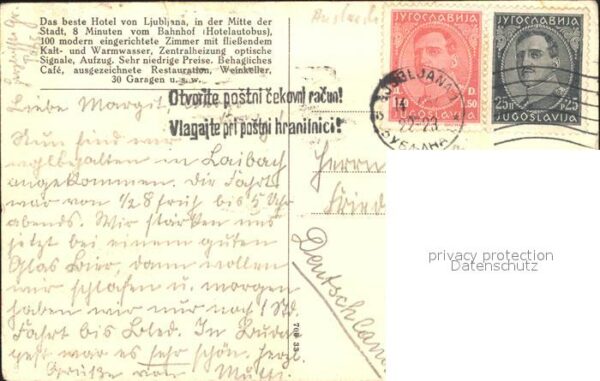 Das beste Hotel von Ljubljana, in der Mitte der
Stadt, 8 Minuten vom Bahnhof (Hotelautobus),
100 modern eingerichtete Zimmer mit fließendem
Kalt- und Warmwasser, Zentralheizung optische
Signale, Aufzug. Sehr niedrige Preise. Behagliches
Café, ausgezeichnete Restauration, Weinkeller,
30 Garagen u.s.w.
Otvorite poštni čekovni račun!
Vlagajte pri poštni hranilnici!
ЈУГОСЛАВИЈА
1 D. 1.50
JUGOSLAVIJA
ЈУГОСЛАВИЈА
25п 25
JUGOSLAVIJA
LJUBLJANA
Liebe Margit
Nun sind wir
wohlbehalten in Laibach
angekommen. Die Fahrt
war von 1/28 früh bis 5 Uhr
abends. Wir stärken uns
jetzt bei einem guten
Glas Bier, dann wollen
wir schlafen u. morgen
haben wir nur noch 1 Std.
Fahrt bis Bled. In Buda-
pest war es sehr schön. Herzl.
Grüße von Mutti.
Herrn
Fried
Deutschland
privacy protection
Datenschutz